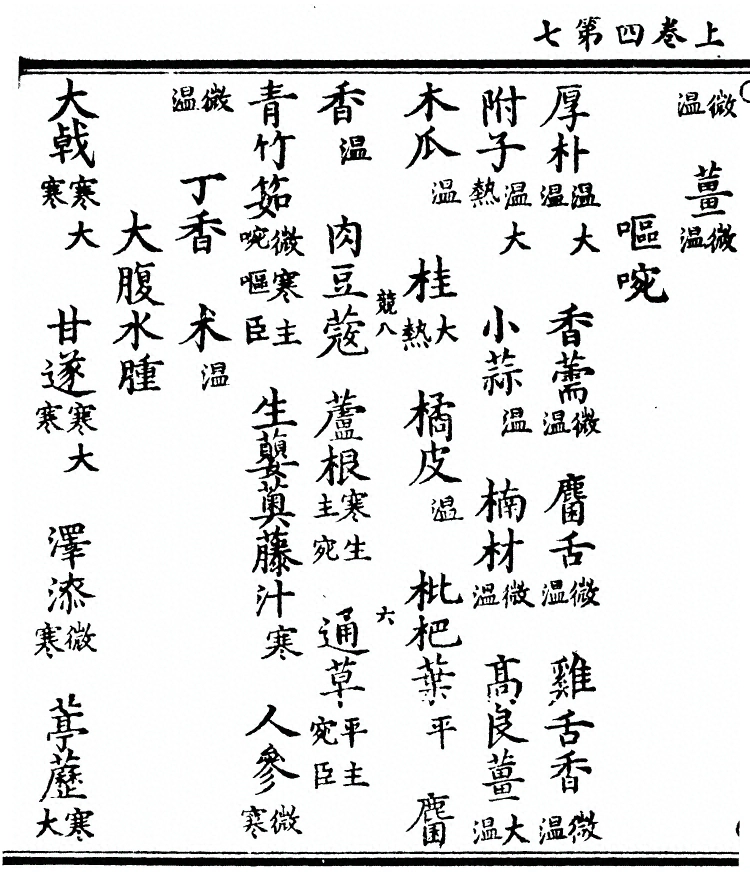 上卷四第七
微温　薑微温
嘔啘
厚朴温大温　香薷微温　麕舌微温　雞舌香微温
附子温大熱　小蒜温　楠材微温　高良薑大温
木瓜温　桂大熱　橘皮温　枇杷葉平　麕
競八
六
香温　肉豆蔻　蘆根寒生主宛　通草平主宛臣
青竹筎微寒主啘嘔臣　生蘡薁藤汁寒　人參微寒
微温　丁香　朮温
大腹水腫
大戟寒大寒　甘遂寒大寒　澤漆微寒　葶藶寒大